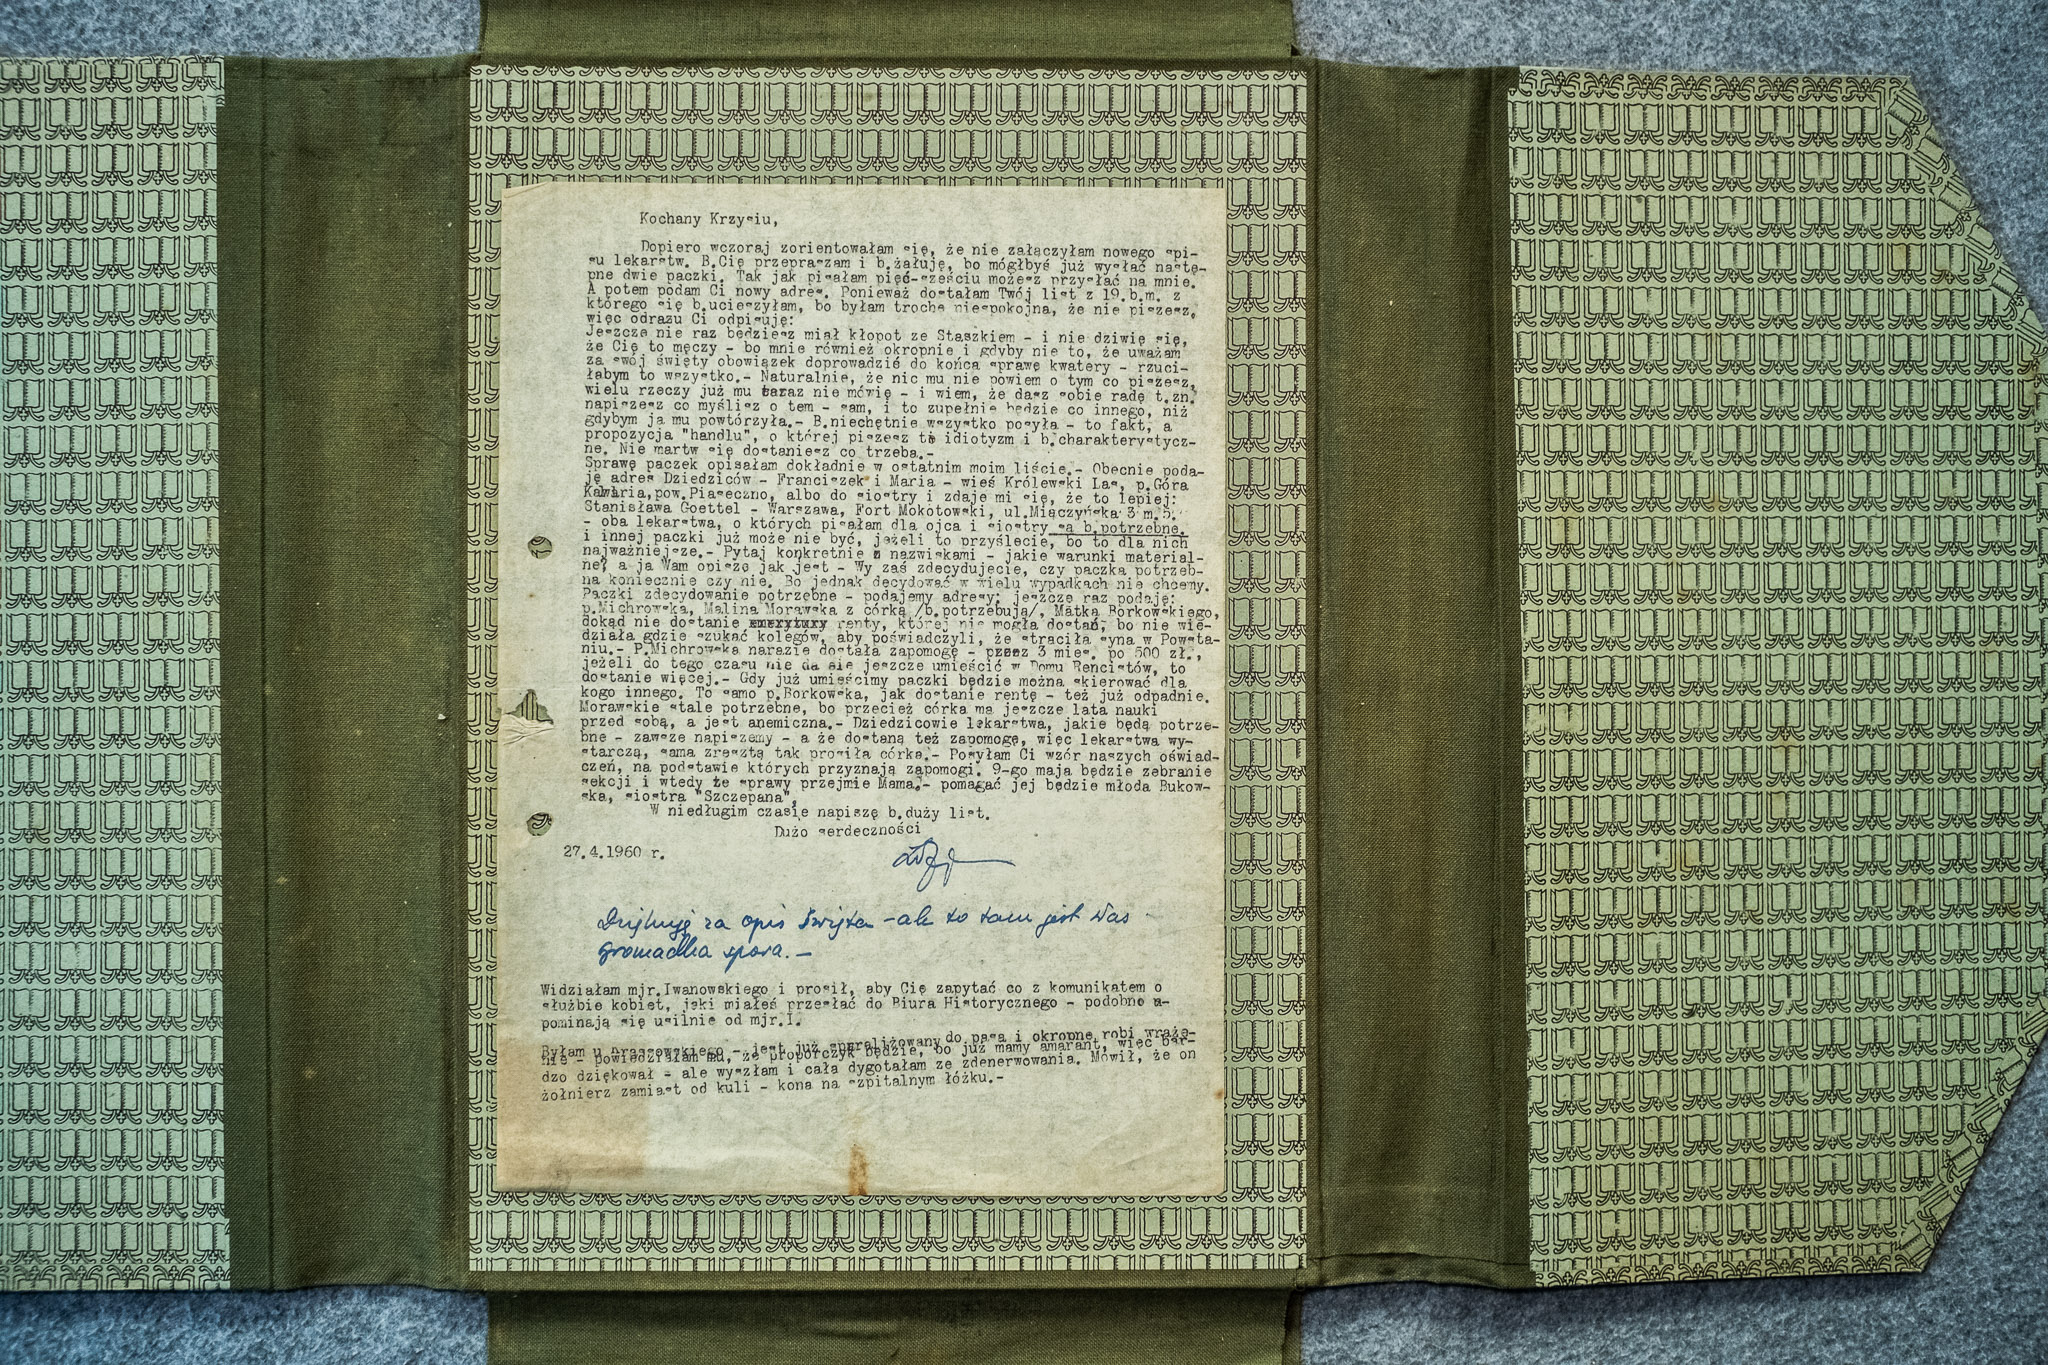 Kochany Krzysiu,
Dopiero wczoraj zorientowałam się, że nie załączyłam nowego spi-
su lekarstw. B.Cię przepraszam i b.żałuję, bo mógłbyś już wysłać nastę-
pne dwie paczki. Tak jak pisałam pięć-sześciu możesz przysłać na mnie.
A potem podam Ci nowy adres. Ponieważ dostałam Twój list z 19.b.m. z
którego się b.ucieszyłam, bo byłam trochę niespokojna, że nie piszesz,
więc odrazu Ci odpisuję:
Jeszcze nie raz będziesz miał kłopot ze Staszkiem - i nie dziwię się,
że Cię to męczy - bo mnie również okropnie i gdyby nie to, że uważam
za swój święty obowiązek doprowadzić do końca sprawę kwatery - rzuci-
łabym to wszystko.- Naturalnie, że nic mu nie powiem o tym co piszesz,
wielu rzeczy już mu teraz nie mówię - i wiem, że dasz sobie radę t.zn.
napiszesz co myślisz o tem - sam, i to zupełnie będzie co innego, niż
gdybym ja mu powtórzyła.- B.niechętnie wszystko posyła - to fakt, a
propozycja "handlu", o której piszesz to idiotyzm i b.charakterystycz-
ne. Nie martw się dostaniesz co trzeba.-
Sprawę paczek opisałam dokładnie w ostatnim moim liście.- Obecnie poda-
ję adres Dziedziców - Franciszek i Maria - wieś Królewski Las, p.Góra
Kalwaria, pow.Piaseczno, albo do siostry i zdaje mi się, że to lepiej:
Stanisława Goettel - Warszawa, Fort Mokotowski, ul.Miączyńska 3 m.5.
- oba lekarstwa, o których pisałam dla ojca i siostry są b.potrzebne.
i innej paczki już może nie być, jeżeli to przyślecie, bo to dla nich
najważniejsze.- Pytaj konkretnie z nazwiskami - jakie warunki material-
ne? a ja Wam opiszę jak jest - Wy zaś zdecydujecie, czy paczka potrzeb-
na koniecznie czy nie. Bo jednak decydować w wielu wypadkach nie chcemy.
Paczki zdecydowanie potrzebne - podajemy adresy; jeszcze raz podaję:
p.Michrowska, Malina Morawska z córką /b.potrzebują/, Matka Borkowskiego,
dokąd nie dostanie emerytury renty, której nie mogła dostać, bo nie wie-
działa gdzie szukać kolegów, aby poświadczyli, że straciła syna w Powsta-
niu.- P.Michrowska narazie dostała zapomogę - przez 3 mies. po 500 zł.,
jeżeli do tego czasu nie da się jeszcze umieścić w Domu Rencistów, to
dostanie więcej.- Gdy już umieścimy paczki będzie można skierować dla
kogo innego. To samo p.Borkowska, jak dostanie rentę - też już odpadnie.
Morawskie stale potrzebne, bo przecież córka ma jeszcze lata nauki
przed sobą, a jest anemiczna.- Dziedzicowie lekarstwa, jakie będą potrze-
bne - zawsze napiszemy - a że dostaną też zapomogę, więc lekarstwa wy-
starczą, sama zresztą tak prosiła córka.- Posyłam Ci wzór naszych oświad-
czeń, na podstawie których przyznają zapomogi. 9-go maja będzie zebranie
sekcji i wtedy te sprawy przejmie Mama.- pomagać jej będzie młoda Bukow-
ska, siostra "Szczepana".
W niedługim czasie napiszę b.duży list.
Dużo serdeczności
27.4.1960 r.
Dziękuję za opis Święta - ale to tam jest Was
gromadka spora.-
Widziałam mjr.Iwanowskiego i prosił, aby Cię zapytać co z komunikatem o
służbie kobiet, jaki miałeś przesłać do Biura Historycznego - podobno u-
pominają się usilnie od mjr.I.
Byłam u - jest już sparaliżowany do pasa i okropne robi wraże-
nie - powiedziałam mu, że proporczyk będzie, bo już mamy amarant, więc bar-
dzo dziękował - ale wyszłam i cała dygotałam ze zdenerwowania. Mówił, że on
żołnierz zamiast od kuli - kona na szpitalnym łóżku.-